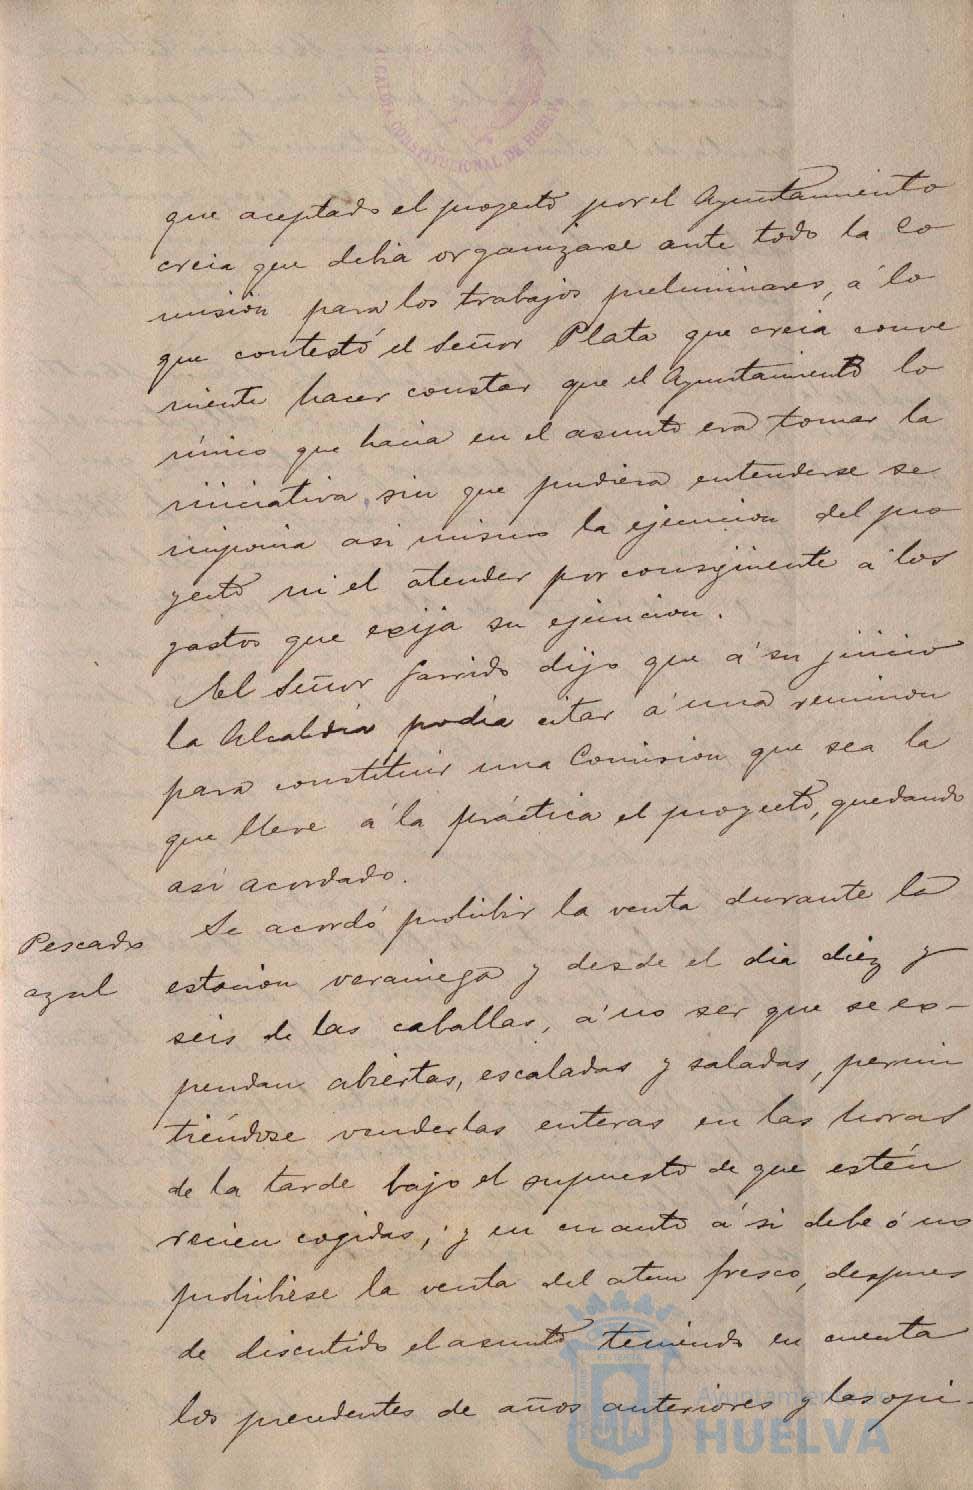 ALCALDIA CONSTITUCIONAL DE HUELVA
que aceptado el proyecto por el Ayuntamiento
creia que debia organizarse ante todo la Co
misión para los trabajos preliminares, á lo
que contestó el Señor Plata que creia conve
niente hacer constar que el Ayuntamiento lo
único que hacia en el asunto era tomar la
iniciativa sin que pudiera entenderse se
imponia asi mismo la ejecucion del pro
yecto ni el atender por consiguiente á los
gastos que exija su ejecucion.
El Señor Garrido dijo que á su juicio
la Alcaldia podia citar á una reunion
para constituir una Comision que sea la
que lleve á la práctica el proyecto, quedando
asi acordado.
Pescado
azul
Se acordó prohibir la venta durante la
estacion veraniega y desde el dia diez y
seis de las caballas, á no ser que se ex-
pendan abiertas, escaladas y saladas, permi
tiéndose venderlas enteras en las horas
de la tarde bajo el supuesto de que estén
recien cogidas; y en cuanto á si debe ó no
prohibirse la venta del atun fresco, despues
de discutido el asunto teniendo en cuenta
los precedentes de años anteriores y las opi-
Ayuntamiento de
HUELVA